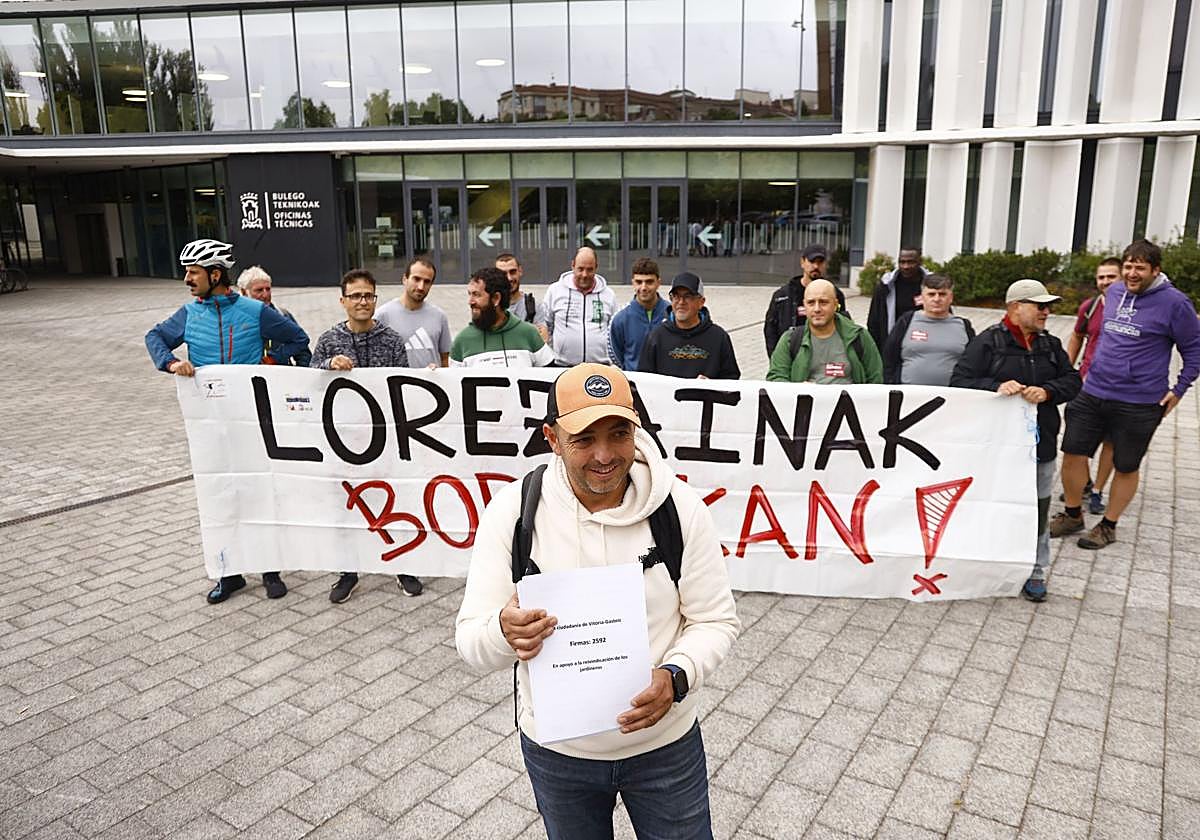 BULEGO
TEKNIKOAK
OFICINAS
TÉCNICAS
LOREZAINAK
BOR KAN!
ciudadanía de Vitoria-Gasteiz
Firmas: 2592
En apoyo a la reivindicación de los
jardineros